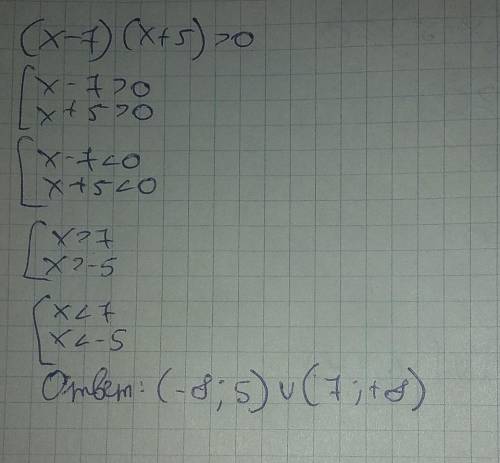 (x-7)(x+5)>0
x-7>0
x+5>0
x-7<0
x+5<0
x>7
x>-5
x<7
x<-5
Ответ: (-∞; 5) ∪ (7; +∞)